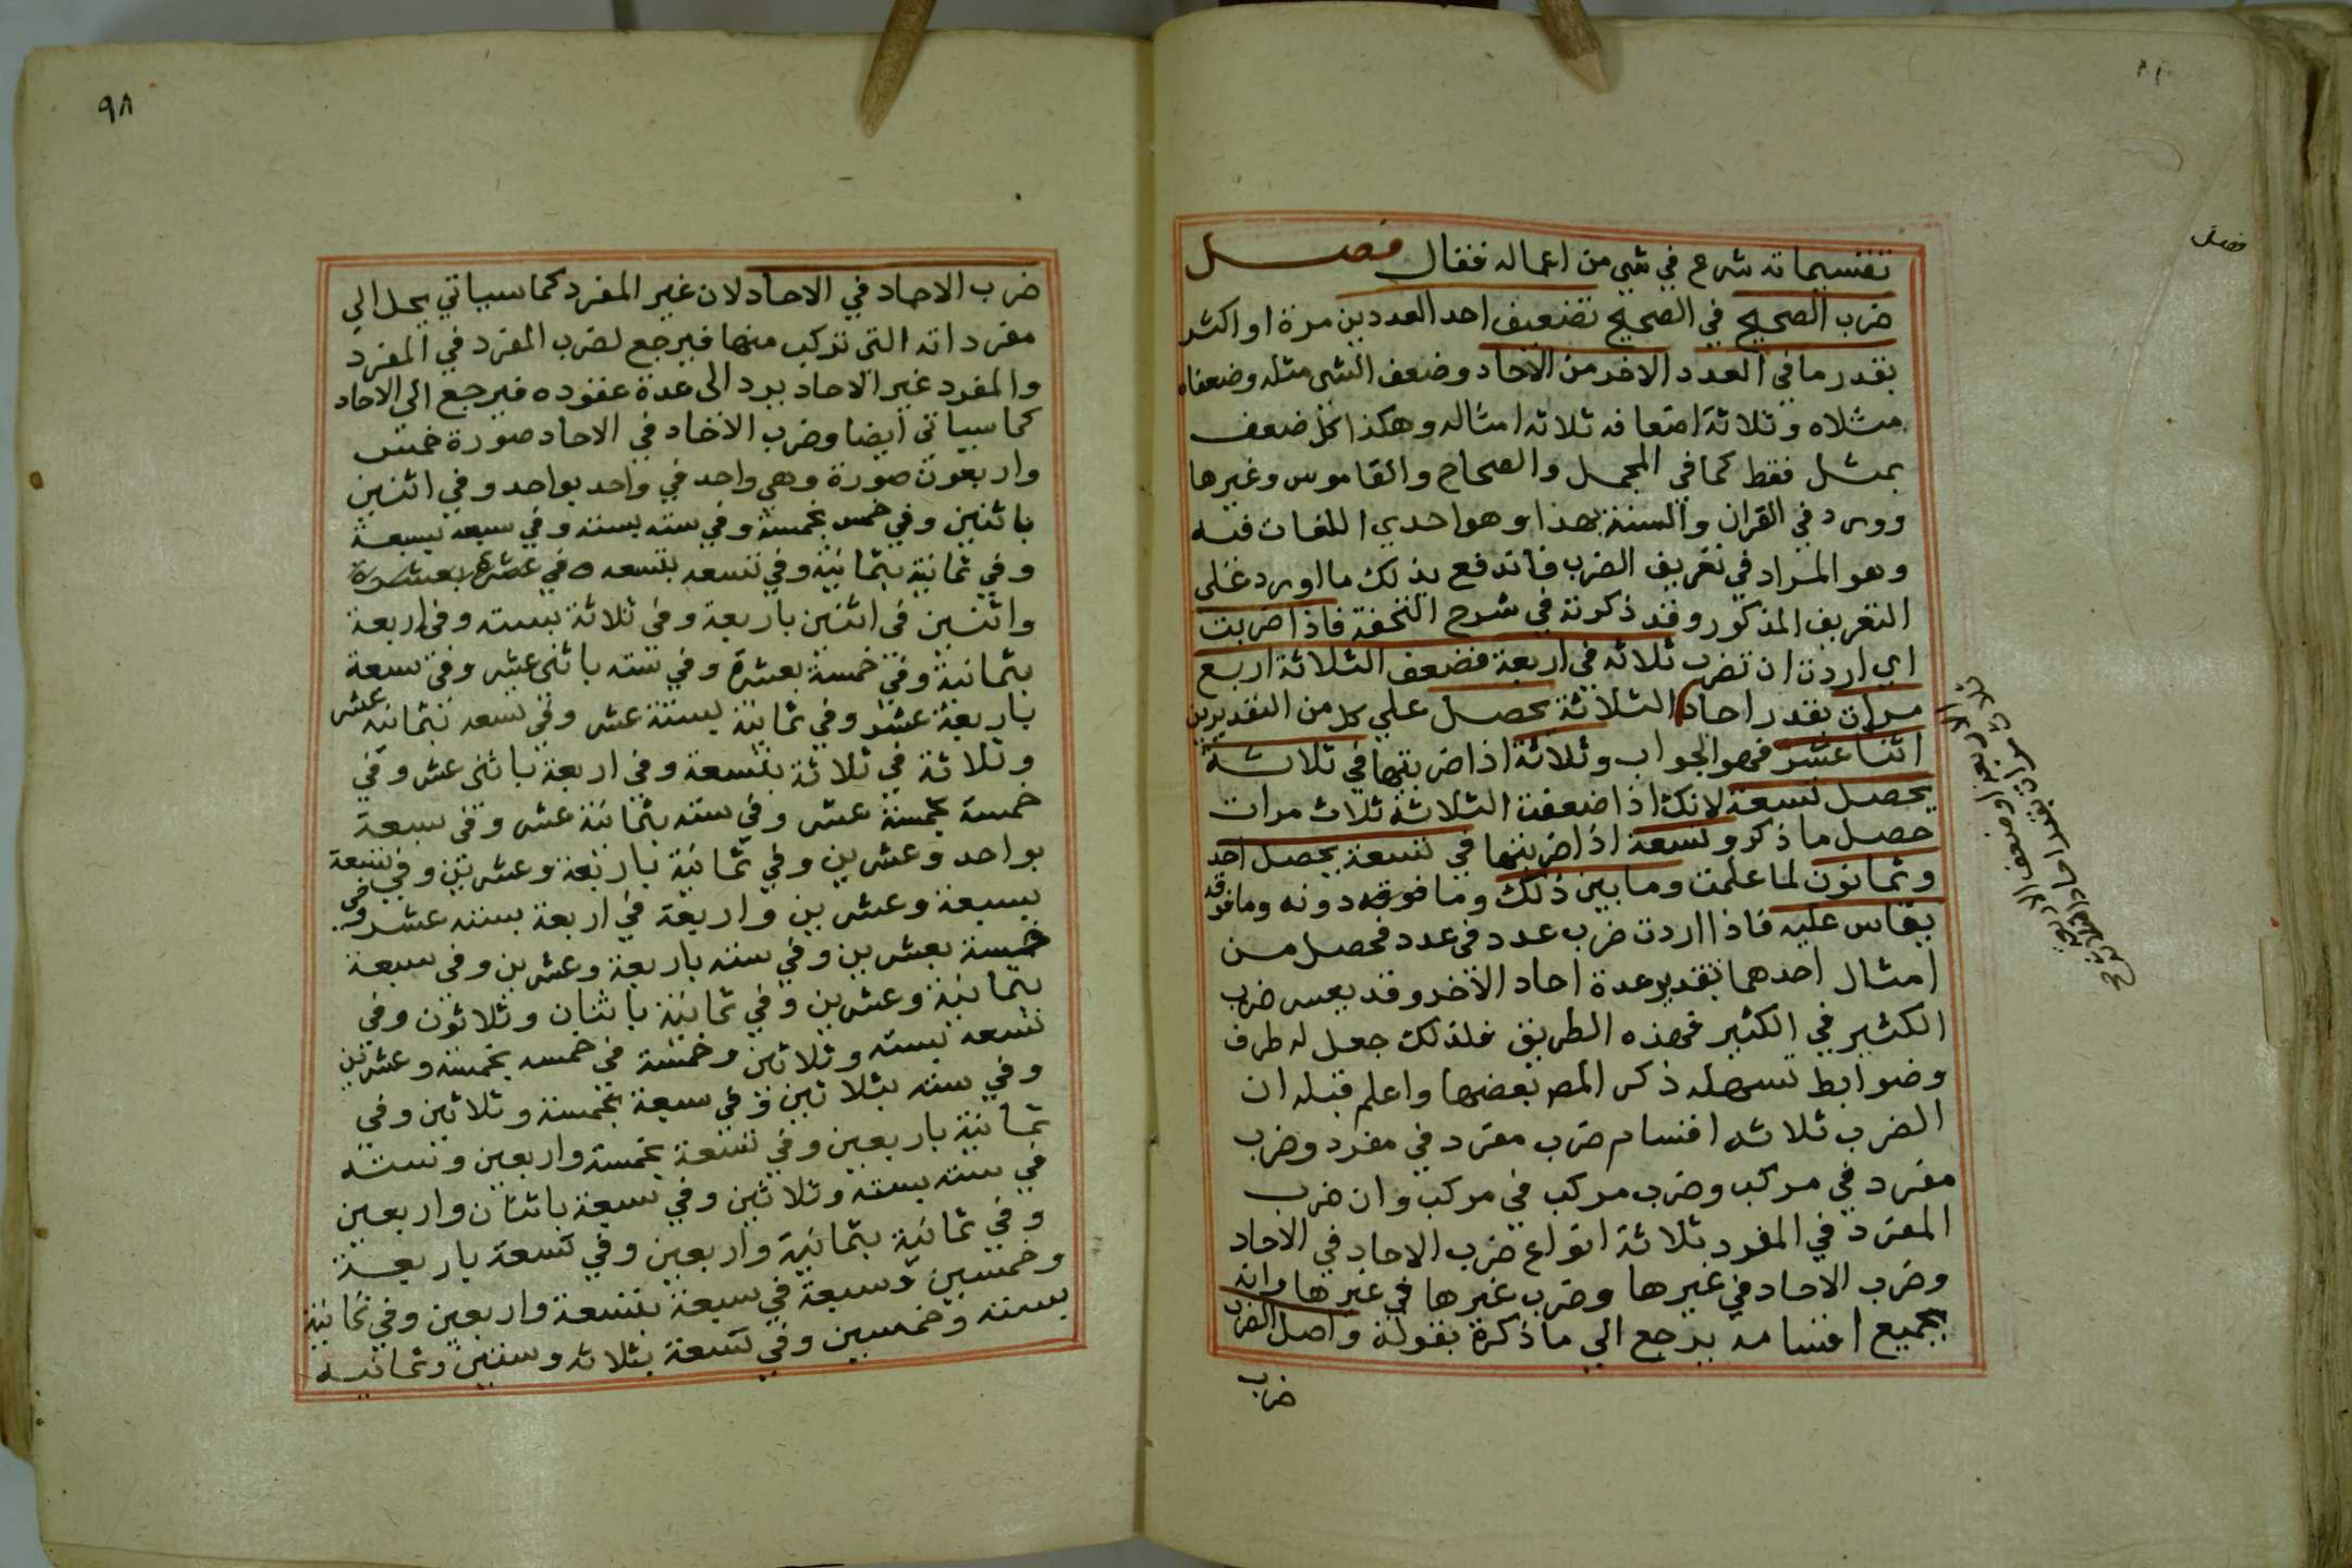 تقسيماته شرع في شي من اعماله فقال فصل
ضرب الصحيح في الصحيح تضعيف احد العددين مرة او اكثر
بقدر ما في العدد الاخر من الاحاد وضعف الشي مثله وضعفاه
مثلاه وثلاثة اضعافه ثلاثه امثاله وهكذا كل ضعف
بمثل فقط كما في المجمل والصحاح والقاموس وغيرها
وورد في القران والسنة بهذا وهو احدي اللغات فيه
وهو المراد في تعريف الضرب فاندفع بذلك ما اورد على
التعريف المذكور وقد ذكرته في شرح التحفة فاذا ضربت
اي اردت ان تضرب ثلاثه في اربعة فضعف الثلاثة اربع
مرات بقدر احاد الثلاثة يحصل علي كل من التقديرين
اثنا عشر فهو الجواب وثلاثة اذا ضربتها في ثلاثة
يحصل تسعة لانك اذا ضعفت الثلاثة ثلاث مرات
حصل ما ذكر وتسعة اذا ضربتها في تسعة يحصل احد
وثمانون لما علمت وما بين ذلك وما فوقه دونه وما فوقه
يقاس عليه فاذا اردت ضرب عدد في عدد فحصل من
امثال احدهما بقدر عدة احاد الاخر وقد يعسر ضرب
الكثير في الكثير فهذه الطريق فلذلك جعل له طرف
وضوابط تسهله ذكر المص بعضها واعلم قبله ان
الضرب ثلاثه اقسام ضرب مفرد في مفرد وضرب
مفرد في مركب وضرب مركب في مركب وان ضرب
المفرد في المفرد ثلاثة انواع ضرب الاحاد في الاحاد
وضرب الاحاد في غيرها وضرب غيرها في غيرها وانه
بجميع اقسامه يرجع الي ما ذكرة بقوله واصل الضرب
ضرب
فصل
٩٨
ضرب الاحاد في الاحاد لان غير المفرد كما سياتي يحل الي
مفرداته التي تركب منها فيرجع لضرب المفرد في المفرد
والمفرد غير الاحاد يرد الى عدة عقوده فيرجع الى الاحاد
كما سياتي ايضا وضرب الاحاد في الاحاد صورة خمس
واربعون صورة وهي واحد في واحد بواحد وفي اثنين
باثنين وفي خمس بخمسة وفي سته بسته وفي سبعه بسبعة
وفي ثمانية بثمانية وفي تسعه بتسعه وفي عشرة بعشرة
واثنين في اثنين باربعة وفي ثلاثة بسته وفي اربعة
بثمانية وفي خمسة بعشرة وفي سته باثنى عشر وفي سبعة
باربعة عشر وفي ثمانية بستة عشر وفي تسعه بثمانيه عشر
وثلاثة في ثلاثة بتسعة وفي اربعة باثنى عشر وفي
خمسة بخمسة عشر وفي سته بثمانية عشر وفي سبعة
بواحد وعشرين وفي ثمانية باربعة وعشرين وفي تسعة
بسبعة وعشرين واربعة في اربعة بسته عشر وفي
خمسة بعشرين وفي سته باربعة وعشرين وفي سبعة
بثمانية وعشرين وفي ثمانية باثنان وثلاثون وفي
تسعه بسته وثلاثين وخمسة في خمسه بخمسة وعشرين
وفي سته بثلاثين وفي سبعة بخمسة وثلاثين وفي
ثمانية باربعين وفي تسعة بخمسة واربعين وستة
في سته بسته وثلاثين وفي سبعة باثنان واربعين
وفي ثمانية بثمانية واربعين وفي تسعة باربعة
وخمسين وسبعة في سبعة بتسعة واربعين وفي ثمانية
بسته وخمسين وفي تسعة بثلاثه وستين وثمانيه